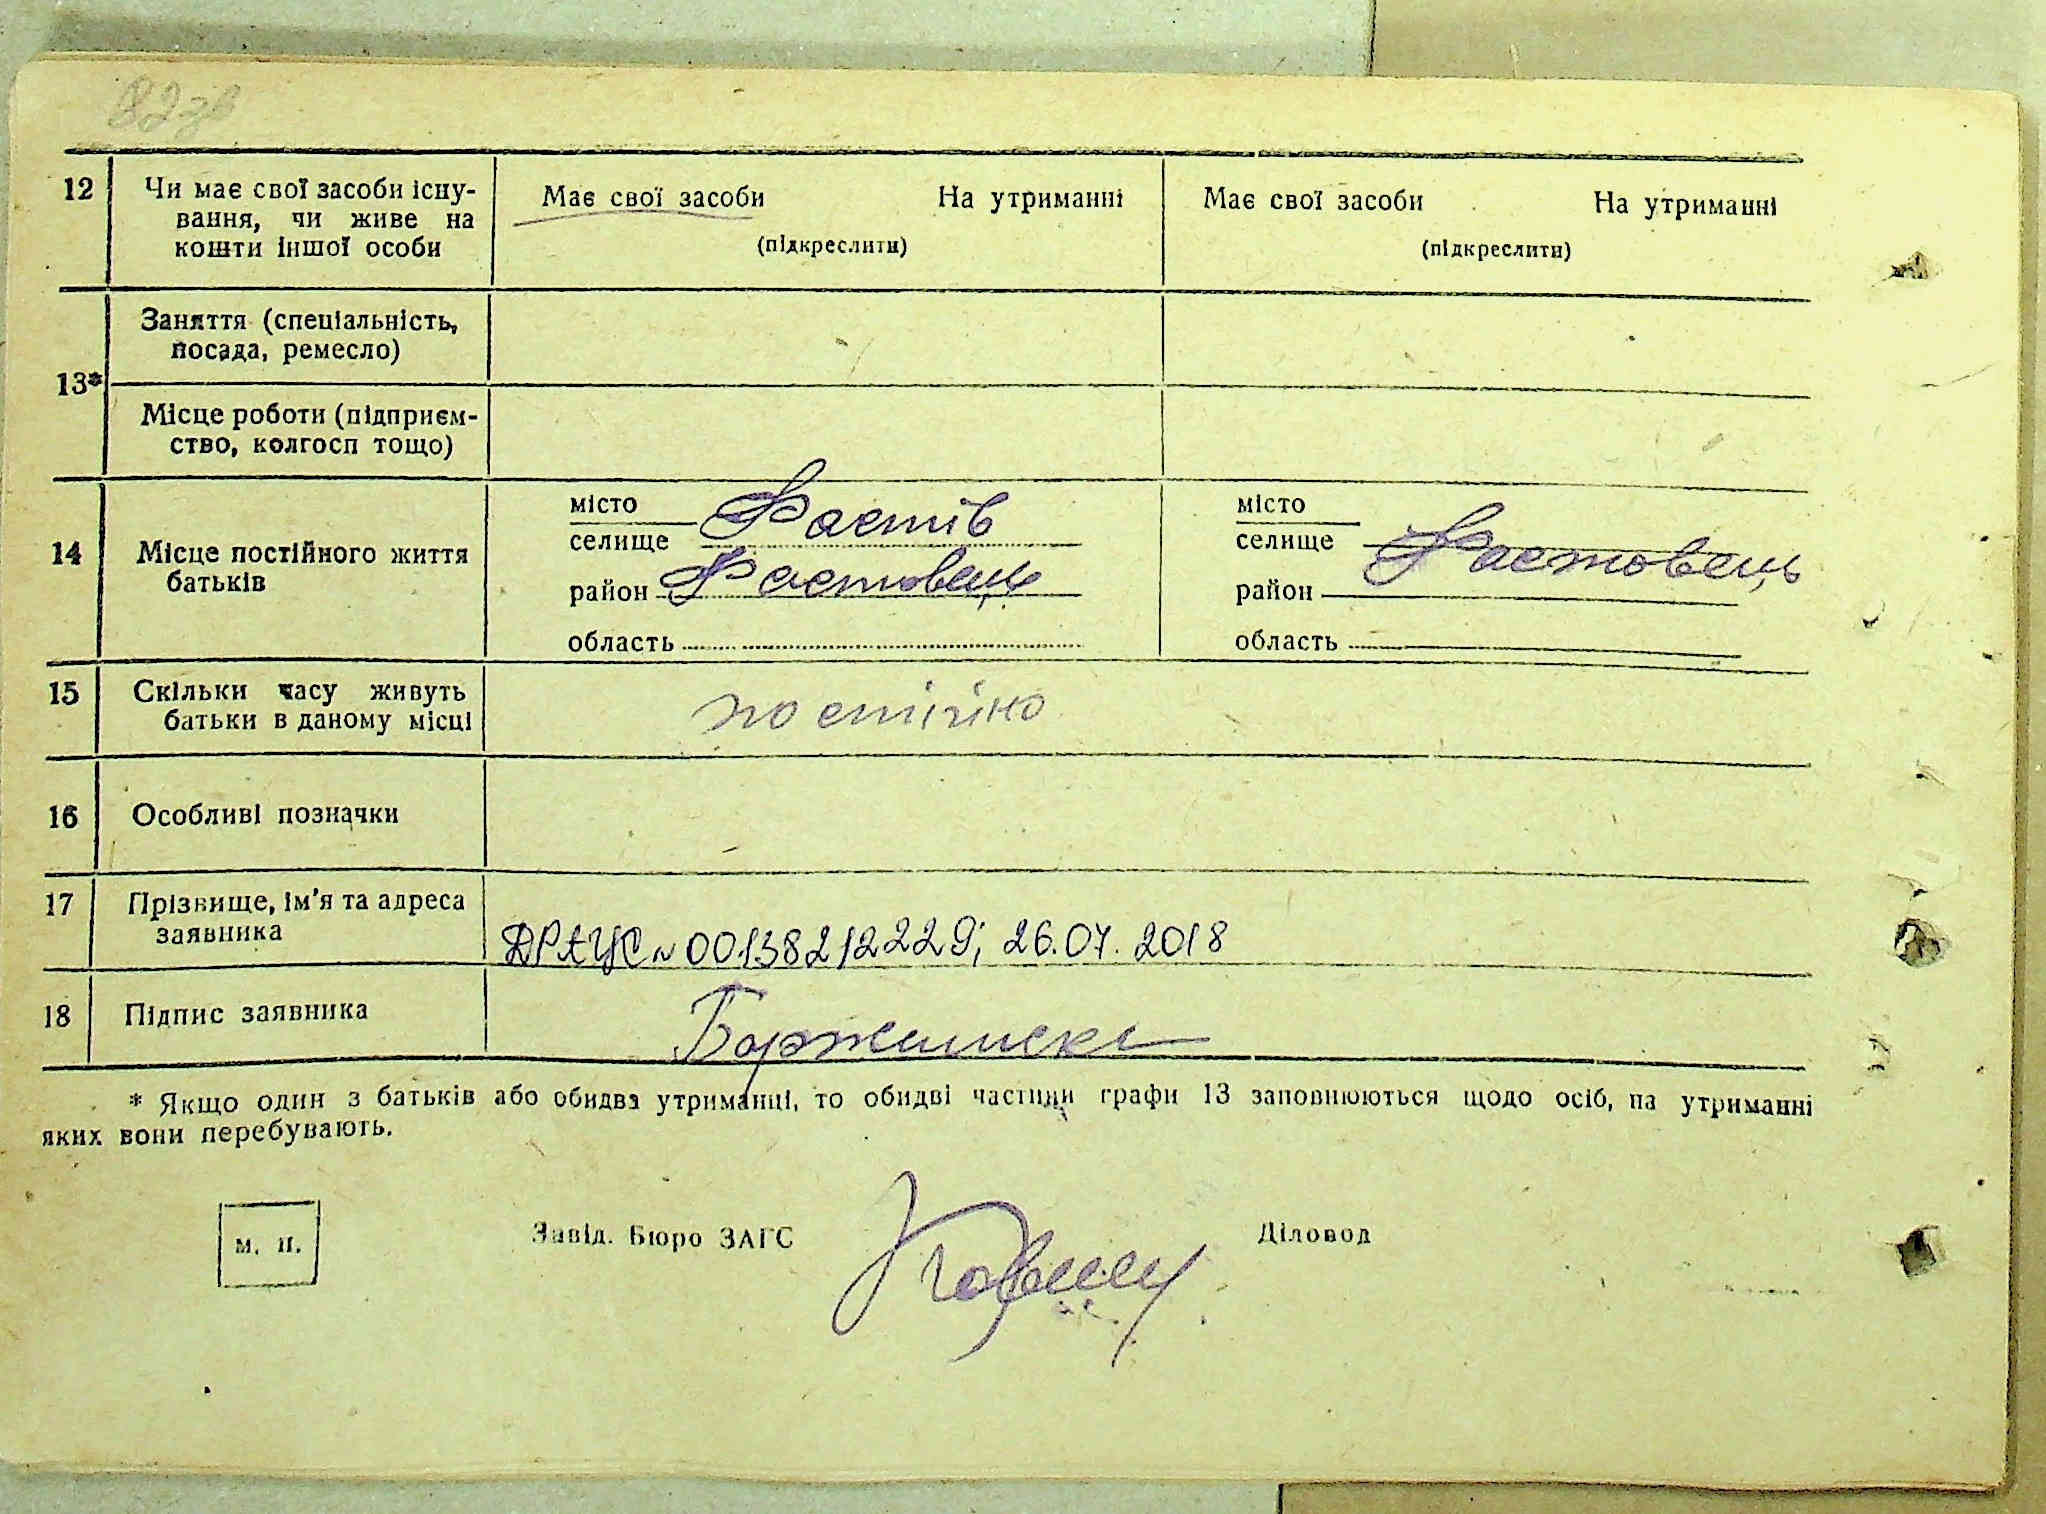 82зв
12 Чи має свої засоби існу- Має свої засоби На утриманні Має свої засоби На утриманні
вання, чи живе на
кошти іншої особи (підкреслити) (підкреслити)
Заняття (спеціальність,
посада, ремесло)
13*
Місце роботи (підприєм-
ство, колгосп тощо)
місто Фастів місто
селище селище Фастовець
14 Місце постійного життя
батьків
район Фастовець район
область область
15 Скільки часу живуть
батьки в даному місці постійно
16 Особливі позначки
17 Прізвище, ім'я та адреса
заявника ДРАЦС № 00138212229; 26.07.2018
18 Підпис заявника
* Якщо один з батьків або обидва утриманці, то обидві частини графи 13 заповнюються щодо осіб, на утриманні
яких вони перебувають.
м. п. Завід. Бюро ЗАГС Діловод